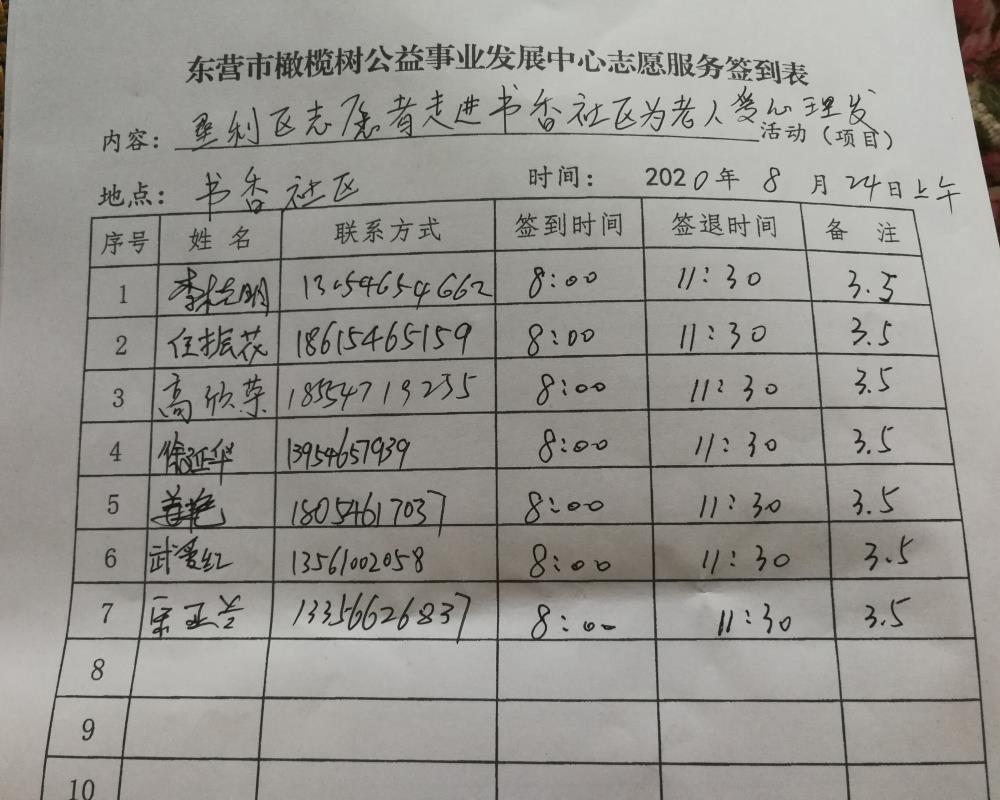 东营市橄榄树公益事业发展中心志愿服务签到表
内容：垦利区志愿者走进书香社区为老人爱心理发活动（项目）
地点：书香社区 时间：2020年8月24日上午
序号 姓名 联系方式 签到时间 签退时间 备注
1 13954654662 8:00 11:30 3.5
2 任振花 18615465159 8:00 11:30 3.5
3 高欣荣 18554719235 8:00 11:30 3.5
4 徐延华 13954657939 8:00 11:30 3.5
5 姜艳 18054617037 8:00 11:30 3.5
6 武爱红 13561002058 8:00 11:30 3.5
7 宋亚兰 13356626837 8:00 11:30 3.5
8
9
10